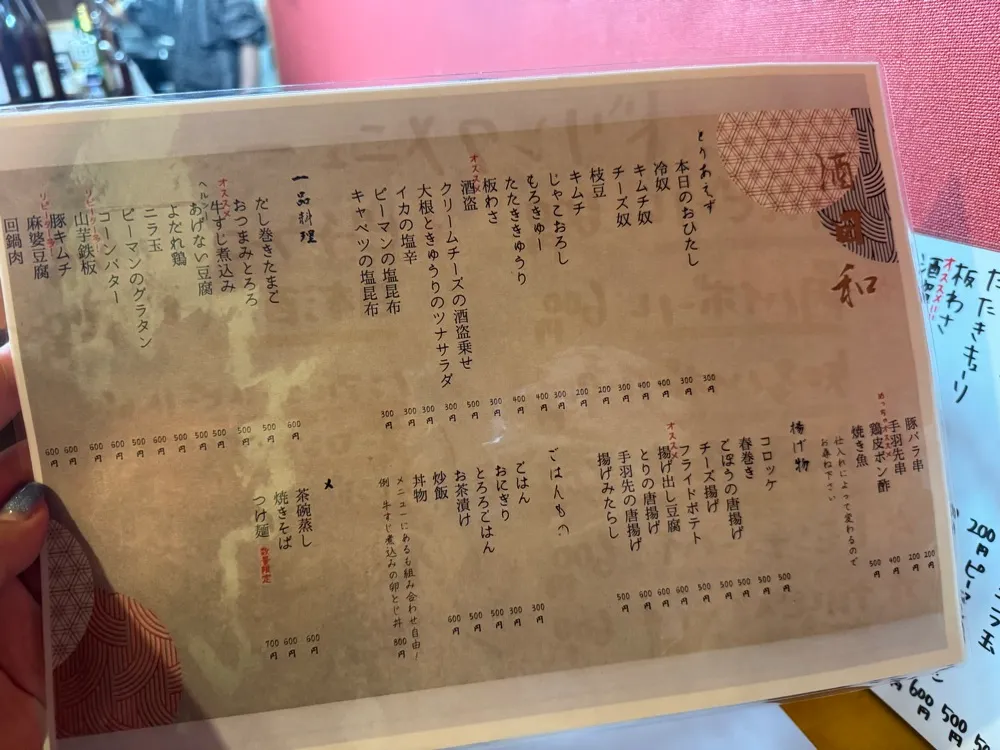 酒日和
とりあえず
本日のおひたし 300円
冷奴 300円
キムチ奴 400円
チーズ奴 400円
枝豆 300円
キムチ 200円
じゃこおろし 200円
もろきゅー 300円
たたききゅうり 400円
板わさ 400円
オススメ
酒盗 300円
クリームチーズの酒盗乗せ 500円
大根ときゅうりのツナサラダ 300円
イカの塩辛 300円
ピーマンの塩昆布 300円
キャベツの塩昆布 300円
一品料理
だし巻きたまご 600円
おつまみとろろ 500円
オススメ
牛すじ煮込み 500円
ヘルシー
あげない豆腐 500円
よだれ鶏 500円
ニラ玉 500円
ピーマンのグラタン 600円
コーンバター 500円
リピーター多
山芋鉄板 600円
豚キムチ 600円
リピーター多
麻婆豆腐 600円
回鍋肉 600円
豚バラ串 200円
手羽先串 200円
めっちゃオススメ
鶏皮ポン酢 400円
焼き魚 500円
仕入れによって変わるので
お尋ね下さい
揚げ物
コロッケ 500円
春巻き 500円
ごぼうの唐揚げ 500円
チーズ揚げ 500円
フライドポテト 500円
オススメ
揚げ出し豆腐 600円
とりの唐揚げ 600円
手羽先の唐揚げ 600円
揚げみたらし 500円
ごはんもの
ごはん 300円
おにぎり 300円
とろろごはん 500円
お茶漬け 500円
炒飯 600円
丼物 800円
メニューにあるも組み合わせ自由!
例 牛すじ煮込みの卵とじ丼
〆
茶碗蒸し 600円
焼きそば 600円
つけ麺 数量限定 700円
たたききゅーり
板わさ
オススメ!!
酒盗
200円
ニラ玉
600円
500円
ドリンクメニュー